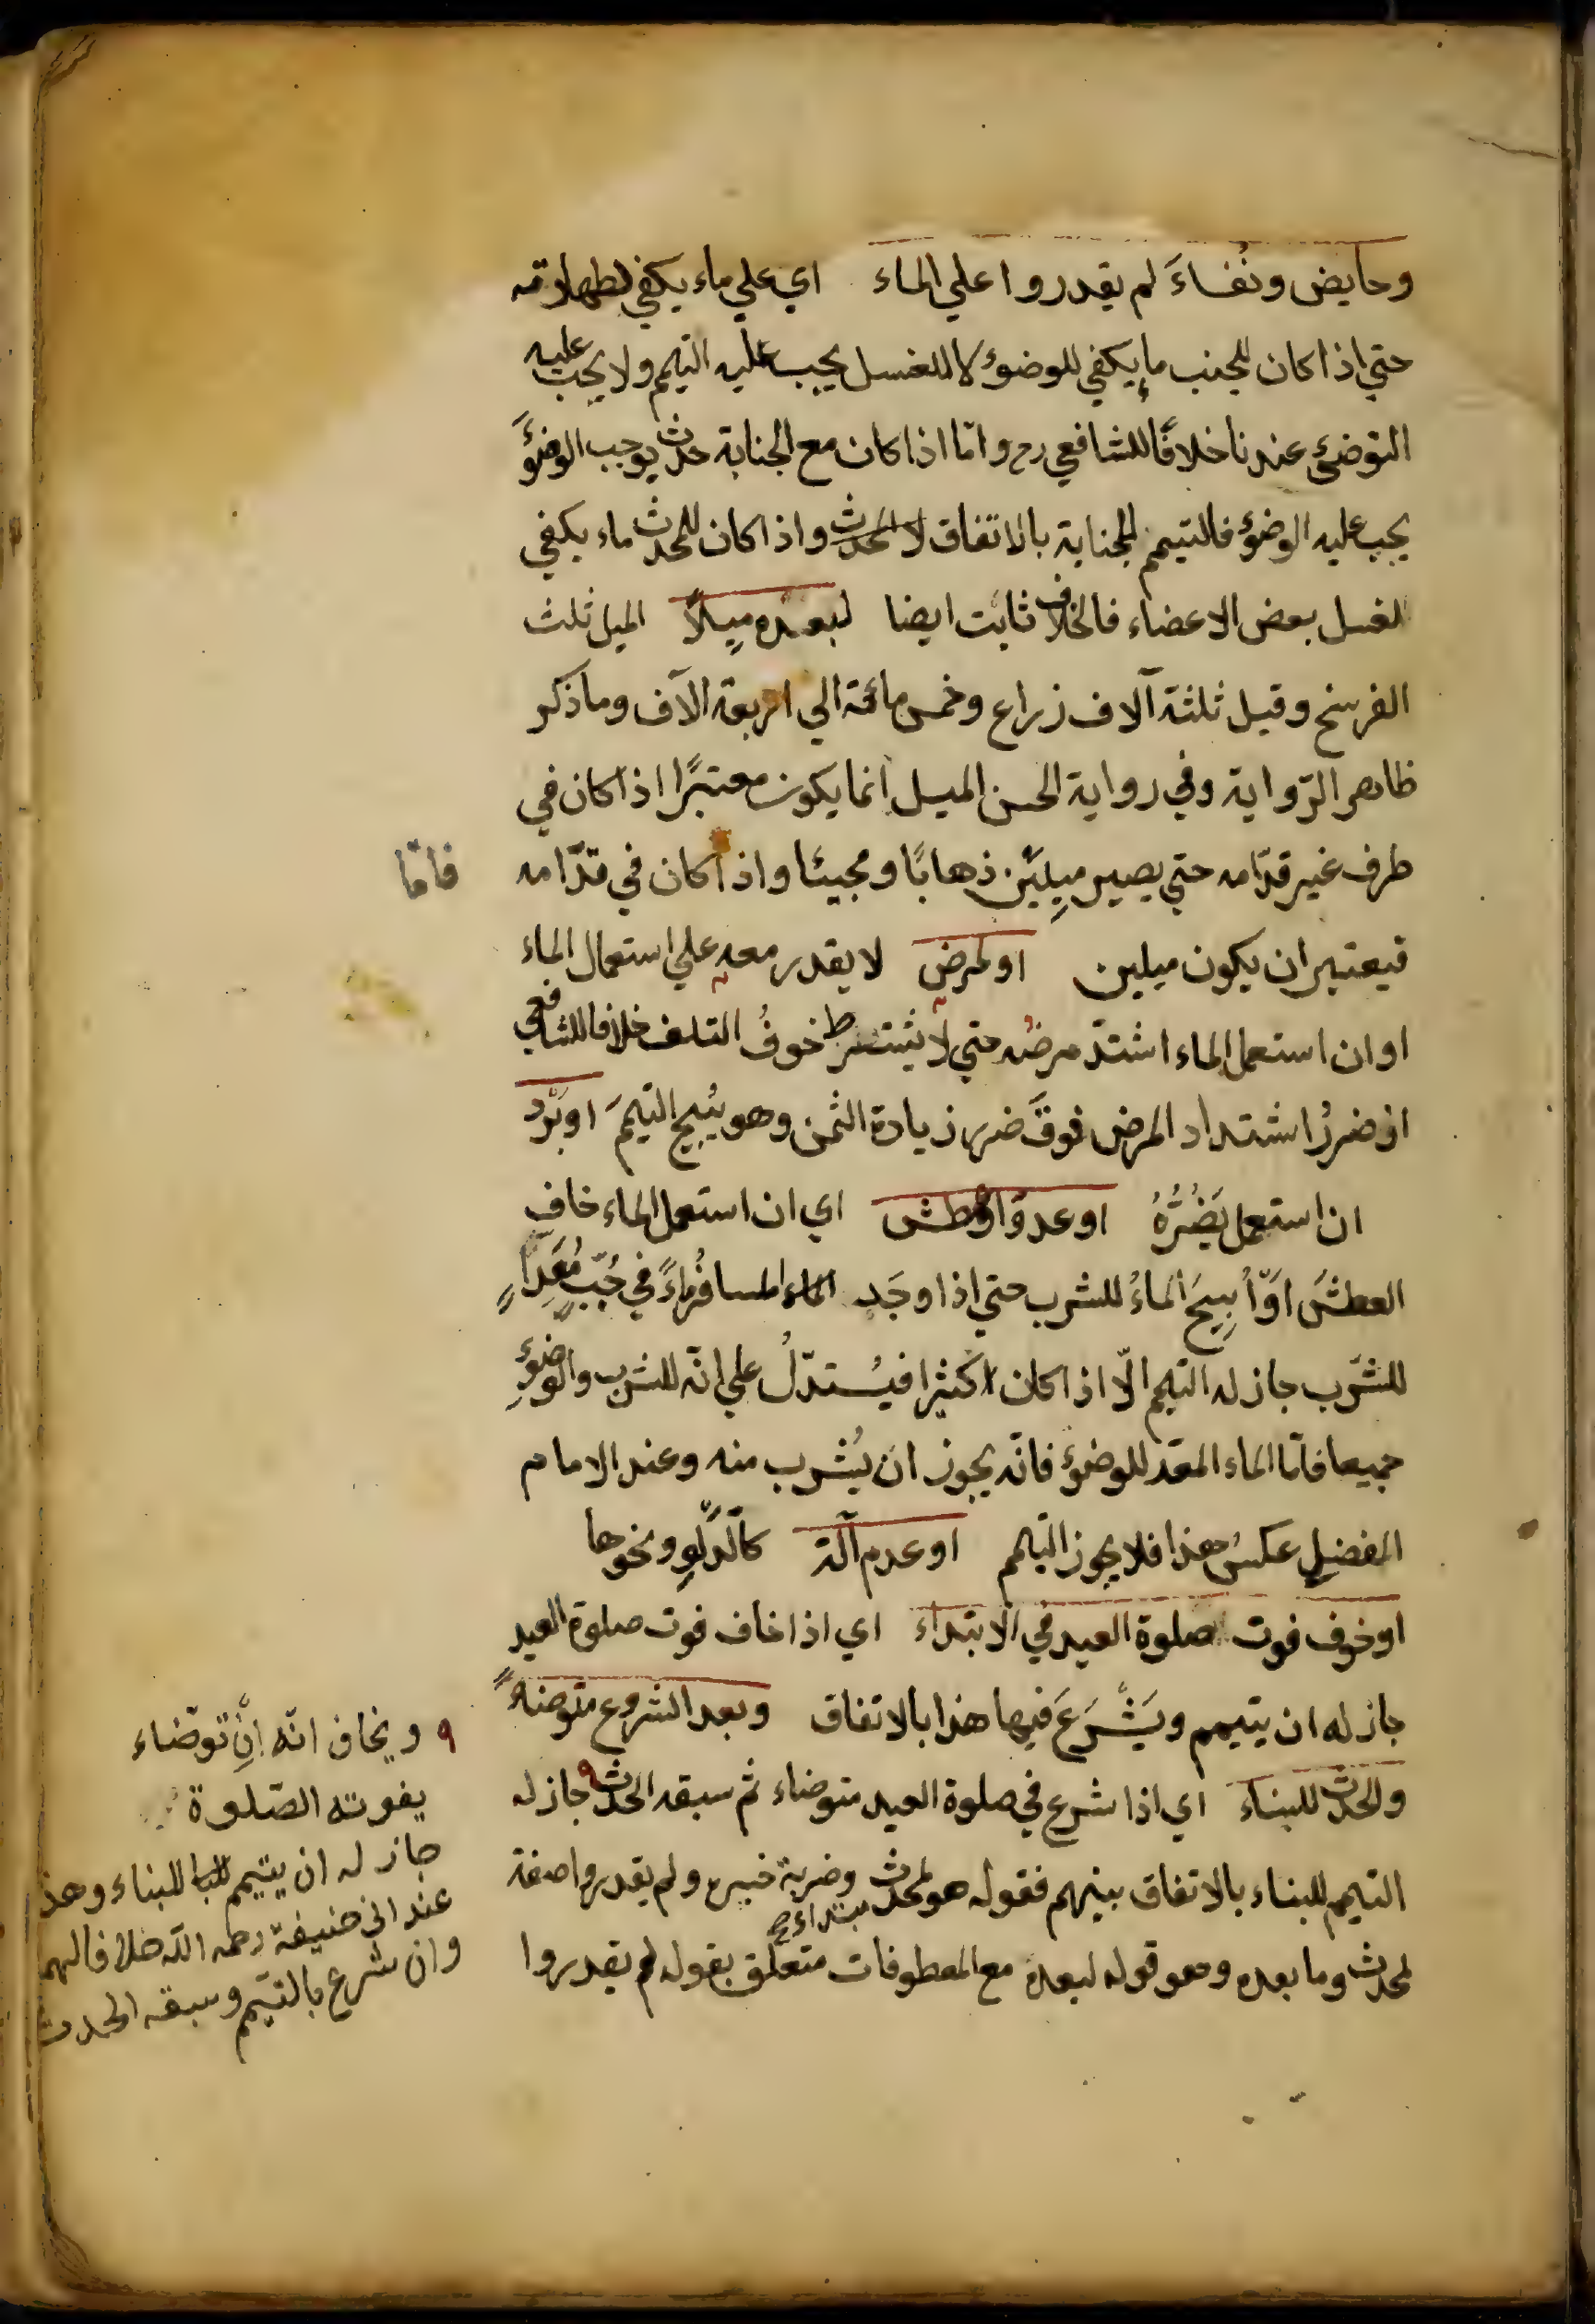 وحايض ونُفساءَ لم يقدروا علي الماء اي علي ماء يكفي لطهارته
حتي اذا كان للجنب ماء يكفي للوضوء لا للغسل يجب عليه التيمم ولا يجب عليه
التوضئ عندنا خلافًا للشافعي رح وامّا اذا كان مع الجنابة حدث يوجب الوضؤَ
يجب عليه الوضوء فالتيمم للجنابة بالاتفاق لا لحدث واذا كان للمحدث ماء يكفي
لغسل بعض الاعضاء فالخلاف ثابت ايضا لبعده ميلاً الميل ثلث
الفرسخ وقيل ثلثة آلاف زراع وخمس مائة الي اربعة الآف وما ذكر
ظاهر الرّواية وفي رواية الحسن الميل انما يكون معتبرًا اذا كان في
طرف غير قدّامه حتي يصير ميلِيَن ذهابًا ومجيئا واذا كان في قدّامه
فامّا
فيعتبر ان يكون ميلين او لمرض لا يقدر معه علي استعمال الماء
او ان استعمل الماء اشتدّ مرضه حتي لا يشترط خوفُ التلف خلافا للشافعي
اذ ضررُ اشتداد المرض فوقَ ضرر زيادة الثمن وهو يُبيح التيممَ او بَرْد
ان استعمل يَضُرُّهُ او عدوّ او عطش اي ان استعمل الماء خاف
العطشَ او اُبِيحَ الماءُ للشرب حتي اذا وجَد المسافرُ ماءً في جُبّ مُعَدًّا
للشّرب جاز له التيمم الّا اذا كان كثيرا فيُستدلُ علي انّه للشرب والوضوءِ
جميعا فامّا الماء المعّد للوضوء فانّه يجوز ان يُشرب منه وعند الامام
المفضلِ عكسُ هذا فلا يجوز التيمم او عدم آلة كالدّلوِ ونحوها
او خوف فوت صلوة العيد في الابتداء اي اذا خاف فوت صلوة العيد
جاز له ان يتيمم ويَشْرَعَ فيها هذا بالاتفاق وبعد الشروع متوضئاً
والحدث للبناء اي اذا شرع في صلوة العيد متوضاء ثم سبقه الحدث ٩ جاز له
التيمم للبناء بالاتفاق بينهم فقوله هو لمحدث مبتداء صح وضربة خبره ولم يقدروا صفة
لمحدث وما بعده وهو قوله لبعده مع المعطوفات متعلّق بقوله لم يقدروا
٩ ويخاف انّه إنْ توضاء
يفوته الصّلوة
جاز له ان يتيمم للبناء وهذ
عند ابي حنيفة رحمه الله خلافا لهما
وان شرع بالتيمم وسبقه الحدث